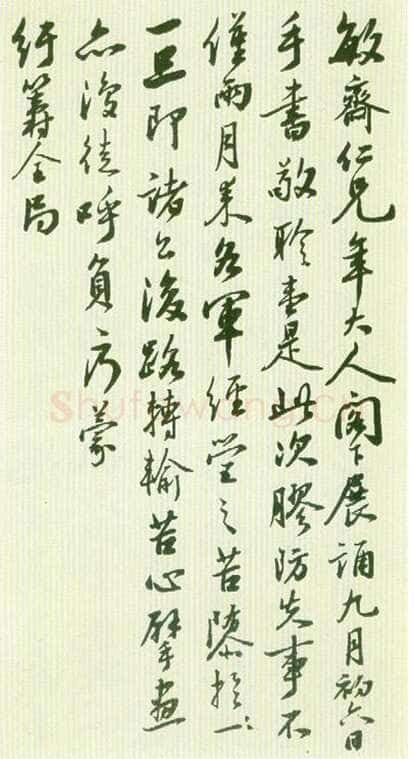 敏齋仁兄年大人閣下展誦九月初六日
手書敬聆壹是此次膠防失事不
僅兩月來各軍經營之苦隳於一
一旦即諸公後路轉輸苦心擘畫
亦復徒呼負〻蒙
紆籌全局